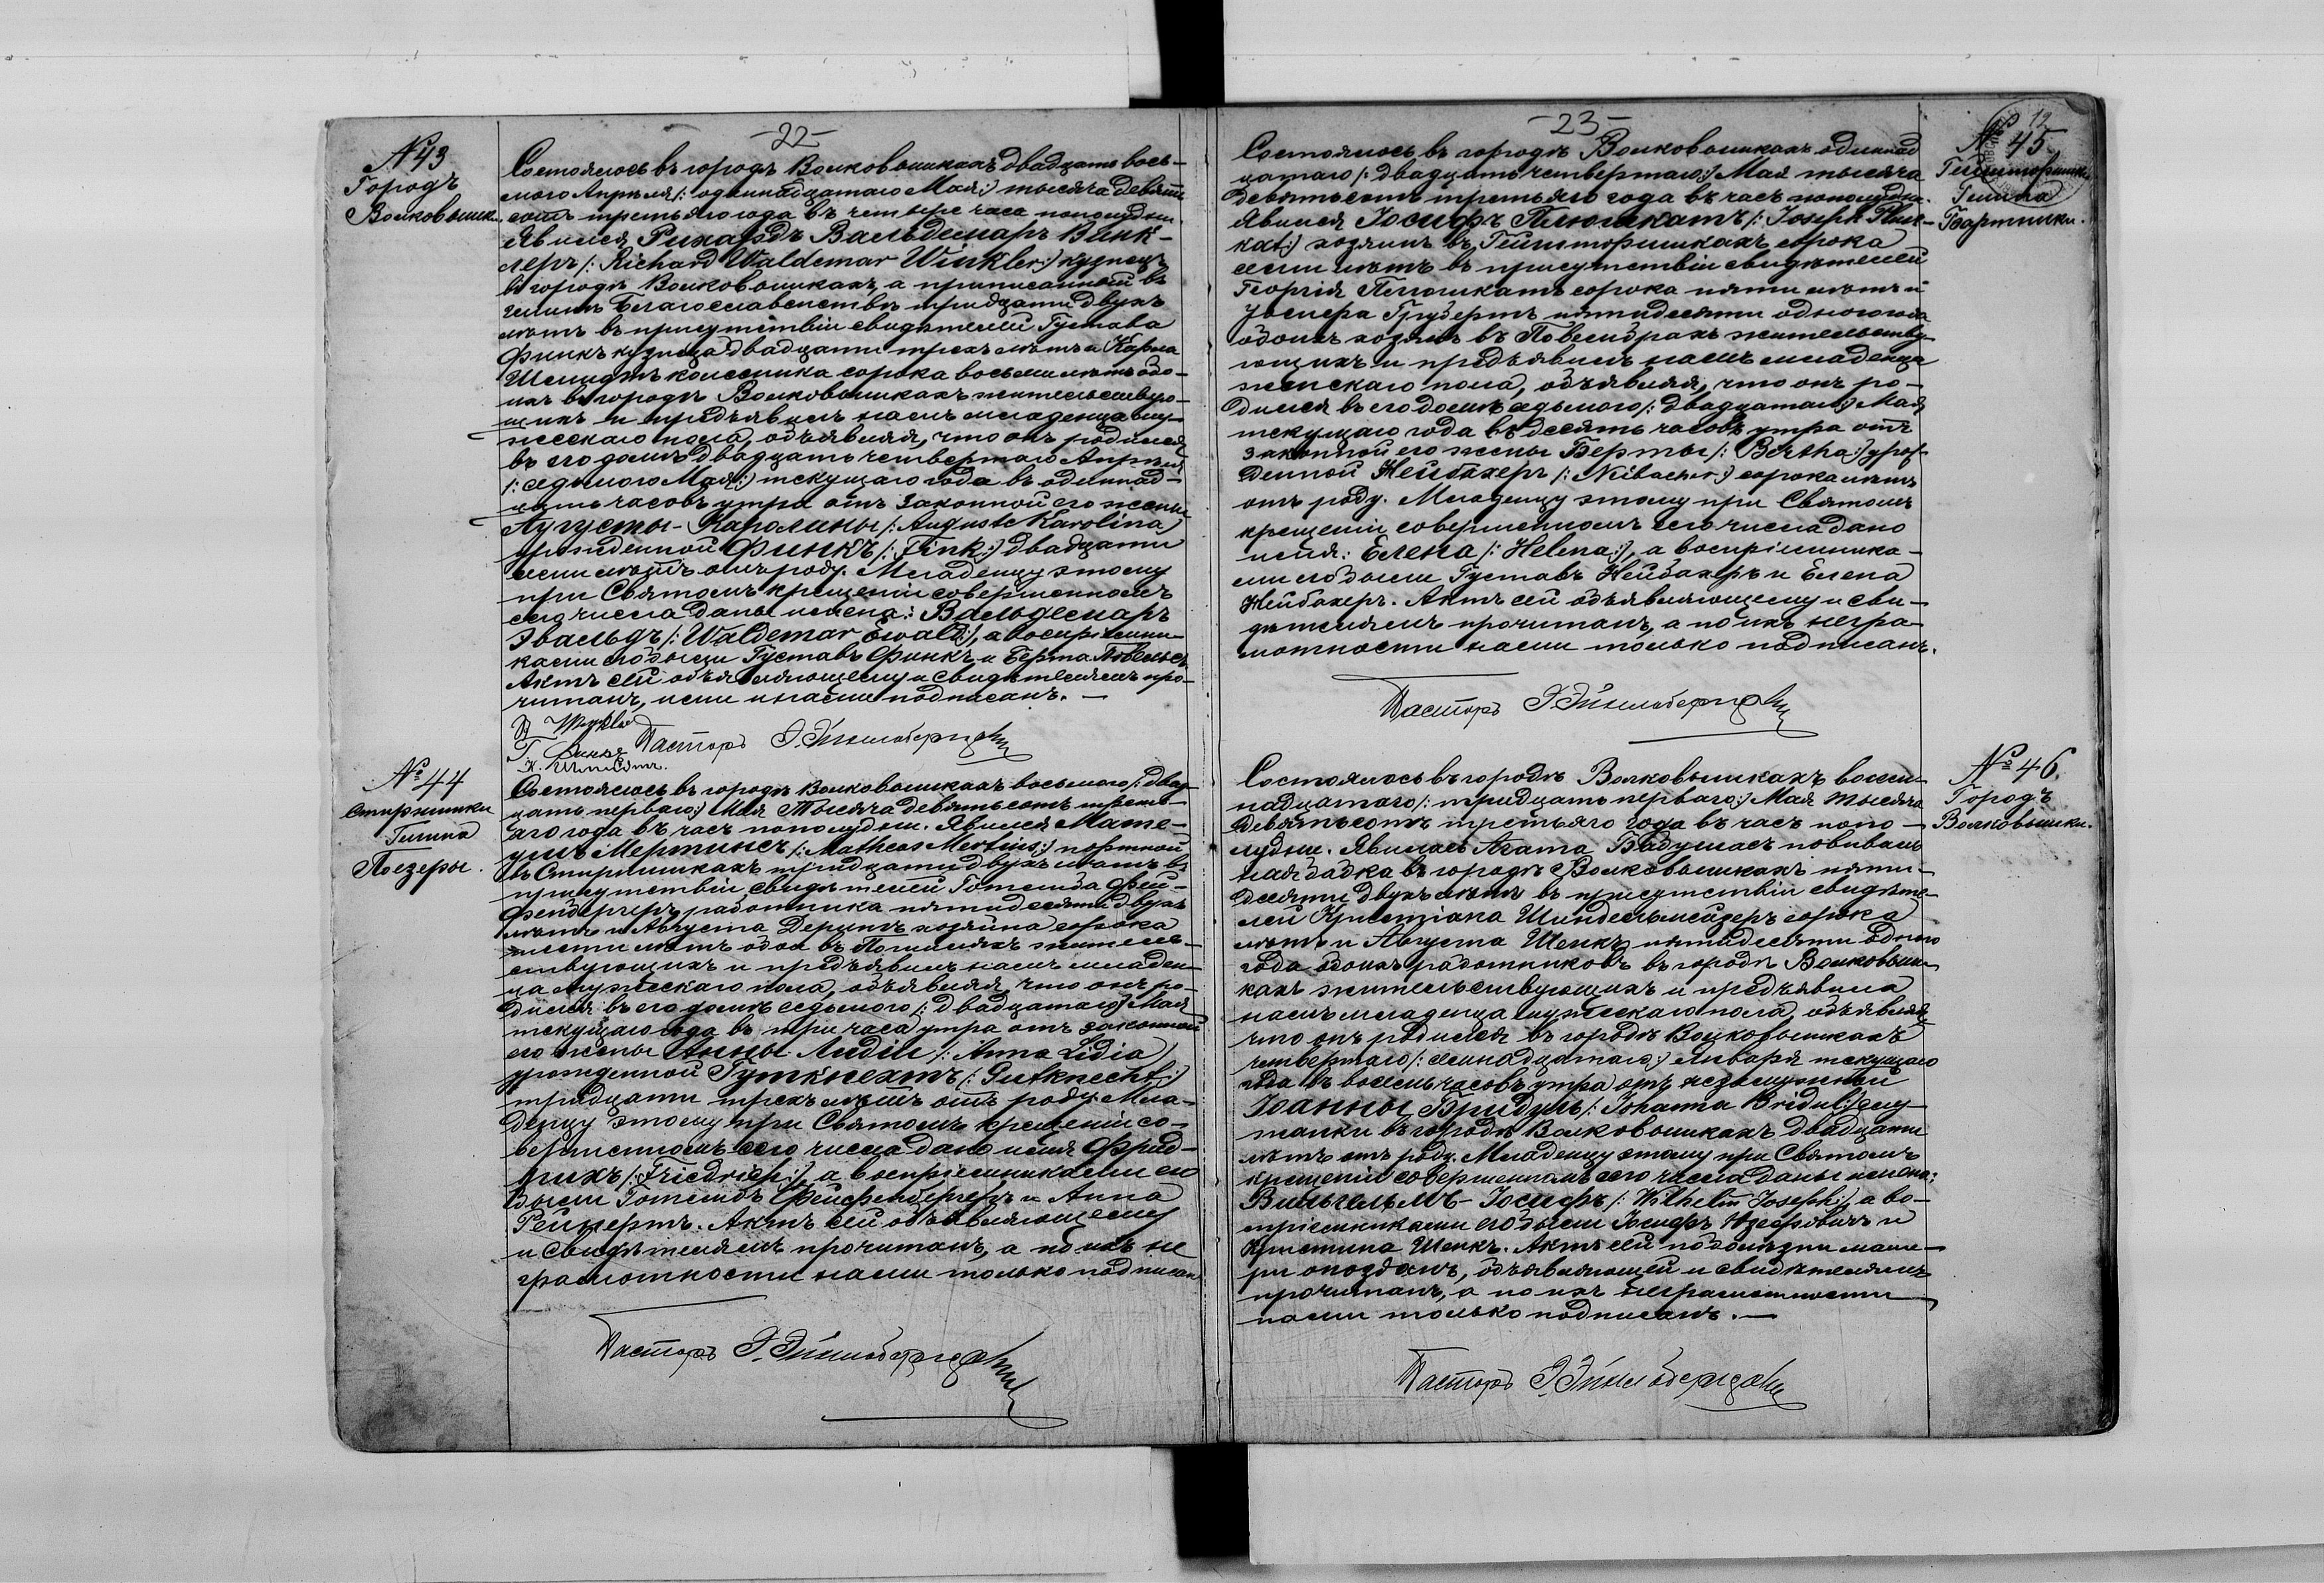 -22-
№ 43
Городъ
Волковышки
Состоялось въ городѣ Волковышкахъ двадцать вось-
мого Апрѣля /: одиннадцатаго Мая :/ тысяча девять
сотъ третьяго года въ четыре часа пополудни
Явился Рихардъ Вальдемаръ Винк-
леръ /: Richard Waldemar Winkler :/ кузнецъ
въ городѣ Волковышкахъ, а приписанный въ
гминѣ Благославенство тридцати двухъ
лѣтъ въ присутствіи свидѣтелей Густава
Финкъ кузнеца двадцати трехъ лѣтъ и Карла
Шмидтъ колесника сорока восьми лѣтъ обо-
ихъ въ городѣ Волковышкахъ жительствую-
щихъ и предъявилъ намъ младенца му-
жескаго пола, объявляя, что онъ родился
въ его домѣ двадцать четвертаго Апрѣля
/: седьмого Мая :/ текущаго года въ одиннад-
цать часовъ утра отъ законной его жены
Августы-Каролины /: Auguste Karolina
урожденной Финкъ /: Fink :/ двадцати
семи лѣтъ отъ роду. Младенцу этому
при Святомъ крещеніи совершенномъ
сего числа даны имена: Вальдемаръ
Эвальдъ /: Waldemar Ewald :/, а воспріемни-
ками его были Густавъ Финкъ и Берта
Актъ сей объявляющему и свидѣтелямъ про-
читанъ, ими и нами подписанъ. —
Г. Финкъ Пасторъ
К. Шмидтъ.
№ 44
Стиршишки
Гмина
Поезеры.
Состоялось въ городѣ Волковышкахъ восьмого /: двад-
цать перваго :/ Мая Тысяча девятьсотъ треть-
яго года въ часъ пополудни. Явился Мате-
ушъ Мертинсъ /: Matheas Mertins :/ портной
въ Стиршишкахъ тридцати двухъ лѣтъ въ
присутствіи свидѣтелей Готлиба Фей-
фенбергеръ работника пятидесяти двухъ
лѣтъ и Августа хозяина сорока
шести лѣтъ обоихъ въ жительс-
ствующихъ и предъявилъ намъ младен-
ца мужескаго пола, объявляя, что онъ ро-
дился въ его домѣ седьмого /: двадцатаго :/ Мая
текущаго года въ три часа утра отъ законной
его жены Анны Лидіи /: Anna Lidia
урожденной Гуткнехтъ /: Gutknecht :/
тридцати трехъ лѣтъ отъ роду. Мла-
денцу этому при Святомъ крещеніи со-
вершенномъ сего числа дано имя Фрид-
рихъ /: Friedrich :/, а воспріемниками его
были Готлибъ Фейфенбергеръ и Анна
Рейнертъ. Актъ сей объявляющему
и свидѣтелямъ прочитанъ, а по ихъ не
грамотности нами только подписанъ
Пасторъ
-23-
12
№ 45
Гмина
Бартники.
Состоялось въ городѣ Волковышкахъ одиннад
цатаго /: двадцать четвертаго :/ Мая тысяча
девятьсотъ третьяго года въ часъ пополудни.
Явился Іосифъ Плюшкатъ /: Joseph Plusch-
kat :/ хозяинъ въ сорока
семи лѣтъ въ присутствіи свидѣтелей
Георгія Плюшкатъ сорока пяти лѣтъ и
Іосифа Грубертъ пятидесяти одного года
обоихъ хозяевъ въ жительству-
ющихъ и предъявилъ намъ младенца
женскаго пола, объявляя, что онъ ро-
дился въ его домѣ седьмого /: двадцатаго :/ Мая
текущаго года въ десять часовъ утра отъ
законной его жены Берты /: Bertha :/ урож-
денной Нейбахеръ /: Neibacher :/ сорока лѣтъ
отъ роду. Младенцу этому при Святомъ
крещеніи совершенномъ сего числа дано
имя: Елена /: Helena :/, а воспріемника-
ми его были Густавъ Нейбахеръ и Елена
Нейбахеръ. Актъ сей объявляющему и сви-
дѣтелямъ прочитанъ, а по ихъ негра-
мотности нами только подписанъ.
Пасторъ
№ 46.
Городъ
Волковышки.
Состоялось въ городѣ Волковышкахъ восем-
надцатаго /: тридцать перваго :/ Мая Тысяча
девятьсотъ третьяго года въ часъ попо-
лудни. Явилась Агата Бадушасъ повиваль
ная бабка въ городѣ Волковышкахъ пяти-
десяти двухъ лѣтъ въ присутствіи свидѣте-
лей Христіана Шиндельмейзеръ сорока
лѣтъ и Августа Шенкъ пятидесяти одного
года обоихъ работниковъ въ городѣ Волковыш-
кахъ жительствующихъ и предъявила
намъ младенца мужескаго пола, объявляя,
что онъ родился въ городѣ Волковышкахъ
четвертаго /: семнадцатаго :/ Января текущаго
года въ восемь часовъ утра отъ незамужней
Іоанны Бридуль /: Johanna Bridul :/ слу-
жанки въ городѣ Волковышкахъ двадцати
лѣтъ отъ роду. Младенцу этому при Святомъ
крещеніи совершенномъ сего числа даны имена:
Вильгельмъ-Іосифъ /: Wilhelm Joseph :/, а во-
спріемниками его были Іосифъ и
Кристина Шенкъ. Актъ сей по болѣзни мате-
ри опоздалъ, объявляющей и свидѣтелямъ
прочитанъ, а по ихъ неграмотности
нами только подписанъ. —
Пасторъ